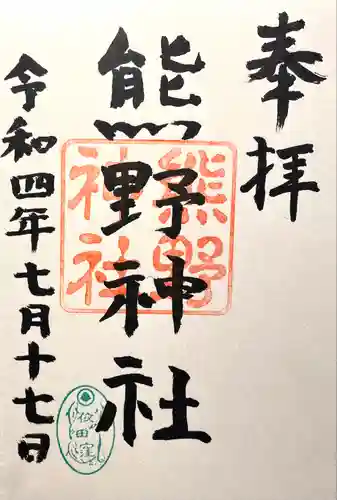 奉拝
熊野神社
熊野
神社
令和四年七月十七日